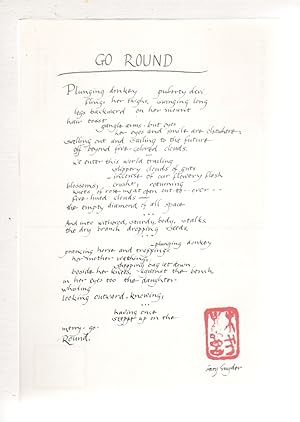 GO ROUND
Plunging donkey puberty devi
flings her thighs, swinging long
legs backward on her mount
hair tosst
gangle arms but eyes
her eyes and smile are elsewhere:
swelling out and sailing to the future
off beyond five-colored clouds.
...
we enter this world trailing
slippery clouds of guts
incense of our flowery flesh
blossoms; crusht; returning
knots of rose meat open out to—over—
five-hued clouds—
the empty diamond of all space
...
And into withered, sturdy, body, stalks
the dry branch dropping seeds
...
plunging donkey
prancing horse and trappings
her mother watching,
shopping bag let down
beside her knees against the bench
in her eyes too the daughter
whirling
looking outward, knowing,
...
having once
stept up on the
merry-go-
Round.
Gary Snyder